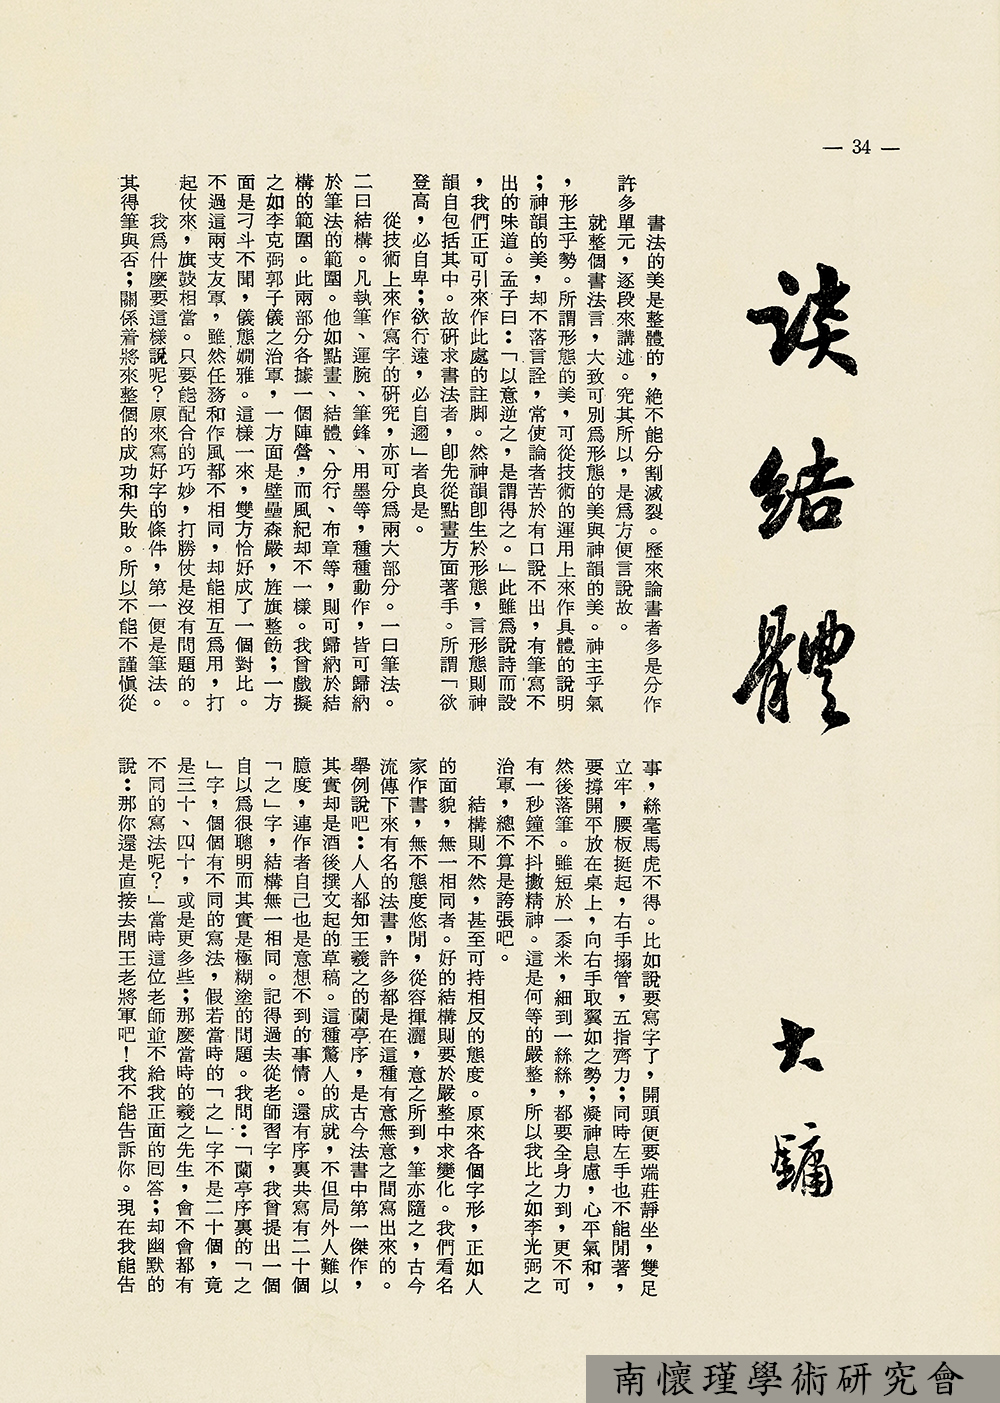 — 34 —
談結體
大鏞
書法的美是整體的，絶不能分割滅裂。歷來論書者多是分作
許多單元，逐段來講述。究其所以，是爲方便言說故。
就整個書法言，大致可別爲形態的美與神韻的美。神主乎氣
，形主乎勢。所謂形態的美，可從技術的運用上來作具體的說明
；神韻的美，却不落言詮，常使論者苦於有口說不出，有筆寫不
出的味道。孟子曰：「以意逆之，是謂得之。」此雖爲說詩而設
，我們正可引來作此處的註脚。然神韻卽生於形態，言形態則神
韻自包括其中。故硏求書法者，卽先從點畫方面著手。所謂「欲
登高，必自卑；欲行遠，必自邇」者良是。
從技術上來作寫字的硏究，亦可分爲兩大部分。一曰筆法。
二曰結構。凡執筆、運腕、筆鋒、用墨等，種種動作，皆可歸納
於筆法的範圍。他如點畫、結體、分行、布章等，則可歸納於結
構的範圍。此兩部分各據一個陣營，而風紀却不一樣。我曾戲擬
之如李克弼郭子儀之治軍，一方面是壁壘森嚴，旌旗整飭；一方
面是刁斗不聞，儀態嫺雅。這樣一來，雙方恰好成了一個對比。
不過這兩支友軍，雖然任務和作風都不相同，却能相互爲用，打
起仗來，旗鼓相當。只要能配合的巧妙，打勝仗是沒有問題的。
我爲什麽要這樣說呢？原來寫好字的條件，第一便是筆法。
其得筆與否；關係着將來整個的成功和失敗。所以不能不謹愼從
事，絲毫馬虎不得。比如說要寫字了，開頭便要端莊靜坐，雙足
立牢，腰板挺起，右手搦管，五指齊力；同時左手也不能閒著，
要撐開平放在桌上，向右手取翼如之勢；凝神息慮，心平氣和，
然後落筆。雖短於一黍米，細到一絲絲，都要全身力到，更不可
有一秒鐘不抖擻精神。這是何等的嚴整，所以我比之如李光弼之
治軍，總不算是誇張吧。
結構則不然，甚至可持相反的態度。原來各個字形，正如人
的面貌，無一相同者。好的結構則要於嚴整中求變化。我們看名
家作書，無不態度悠閒，從容揮灑，意之所到，筆亦隨之，古今
流傳下來有名的法書，許多都是在這種有意無意之間寫出來的。
舉例說吧：人人都知王羲之的蘭亭序，是古今法書中第一傑作，
其實却是酒後撰文起的草稿。這種驚人的成就，不但局外人難以
臆度，連作者自己也是意想不到的事情。還有序裏共寫有二十個
「之」字，結構無一相同。記得過去從老師習字，我曾提出一個
自以爲很聰明而其實是極糊塗的問題。我問：「蘭亭序裏的「之
」字，個個有不同的寫法，假若當時的「之」字不是二十個，竟
是三十、四十，或是更多些；那麽當時的羲之先生，會不會都有
不同的寫法呢？」當時這位老師並不給我正面的囘答；却幽默的
說：那你還是直接去問王老將軍吧！我不能告訴你。現在我能告
南懷瑾學術研究會